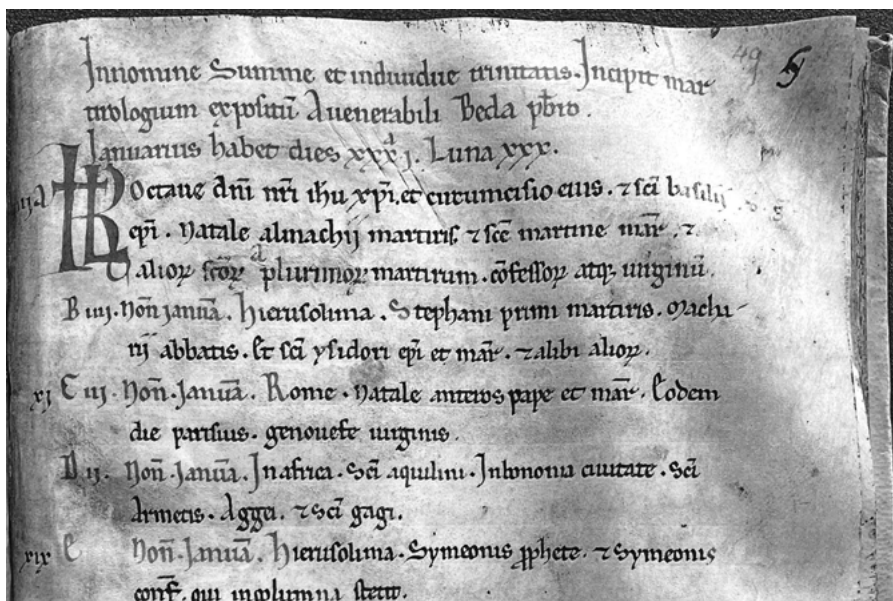 Innomine Summe et indiuidue trinitatis. Incipit mar
tirologium expositū Auenerabili Beda pb̄ro.
Ianuarius habet dies xxxj. Luna xxx.
Octaue dn̄i nr̄i ih̄u xp̄i. et circumcisio eius. ⁊ sc̄i basilij
ep̄i. Natale almachij martiris. ⁊ sc̄e martine mar̄. ⁊
alioꝝ sc̄oꝝ plurimoꝝ martirum. cōfessoꝝ atq; uirginū.
B iiij. Non̄ januā. Hierusolima. Stephani primi martiris. Machi-
rij abbatis. Et sc̄i ysidori ep̄i et mar̄. ⁊ alibi alioꝝ.
xj C iij. Non̄. Januā. Rome. Natale anteros pape et mar̄. Eodem
die parisius. genouefe uirginis.
D ij. Non̄. Januā. Inafrica. Sc̄i aquilini. Inbononia ciuitate. Sc̄i
Armetis. Aggei. ⁊ Sc̄i gagi.
xix E Non̄. Januā. Hierusolima. Symeonis ꝓphete. ⁊ Symeonis
conf̄. qui incolumna stetit.